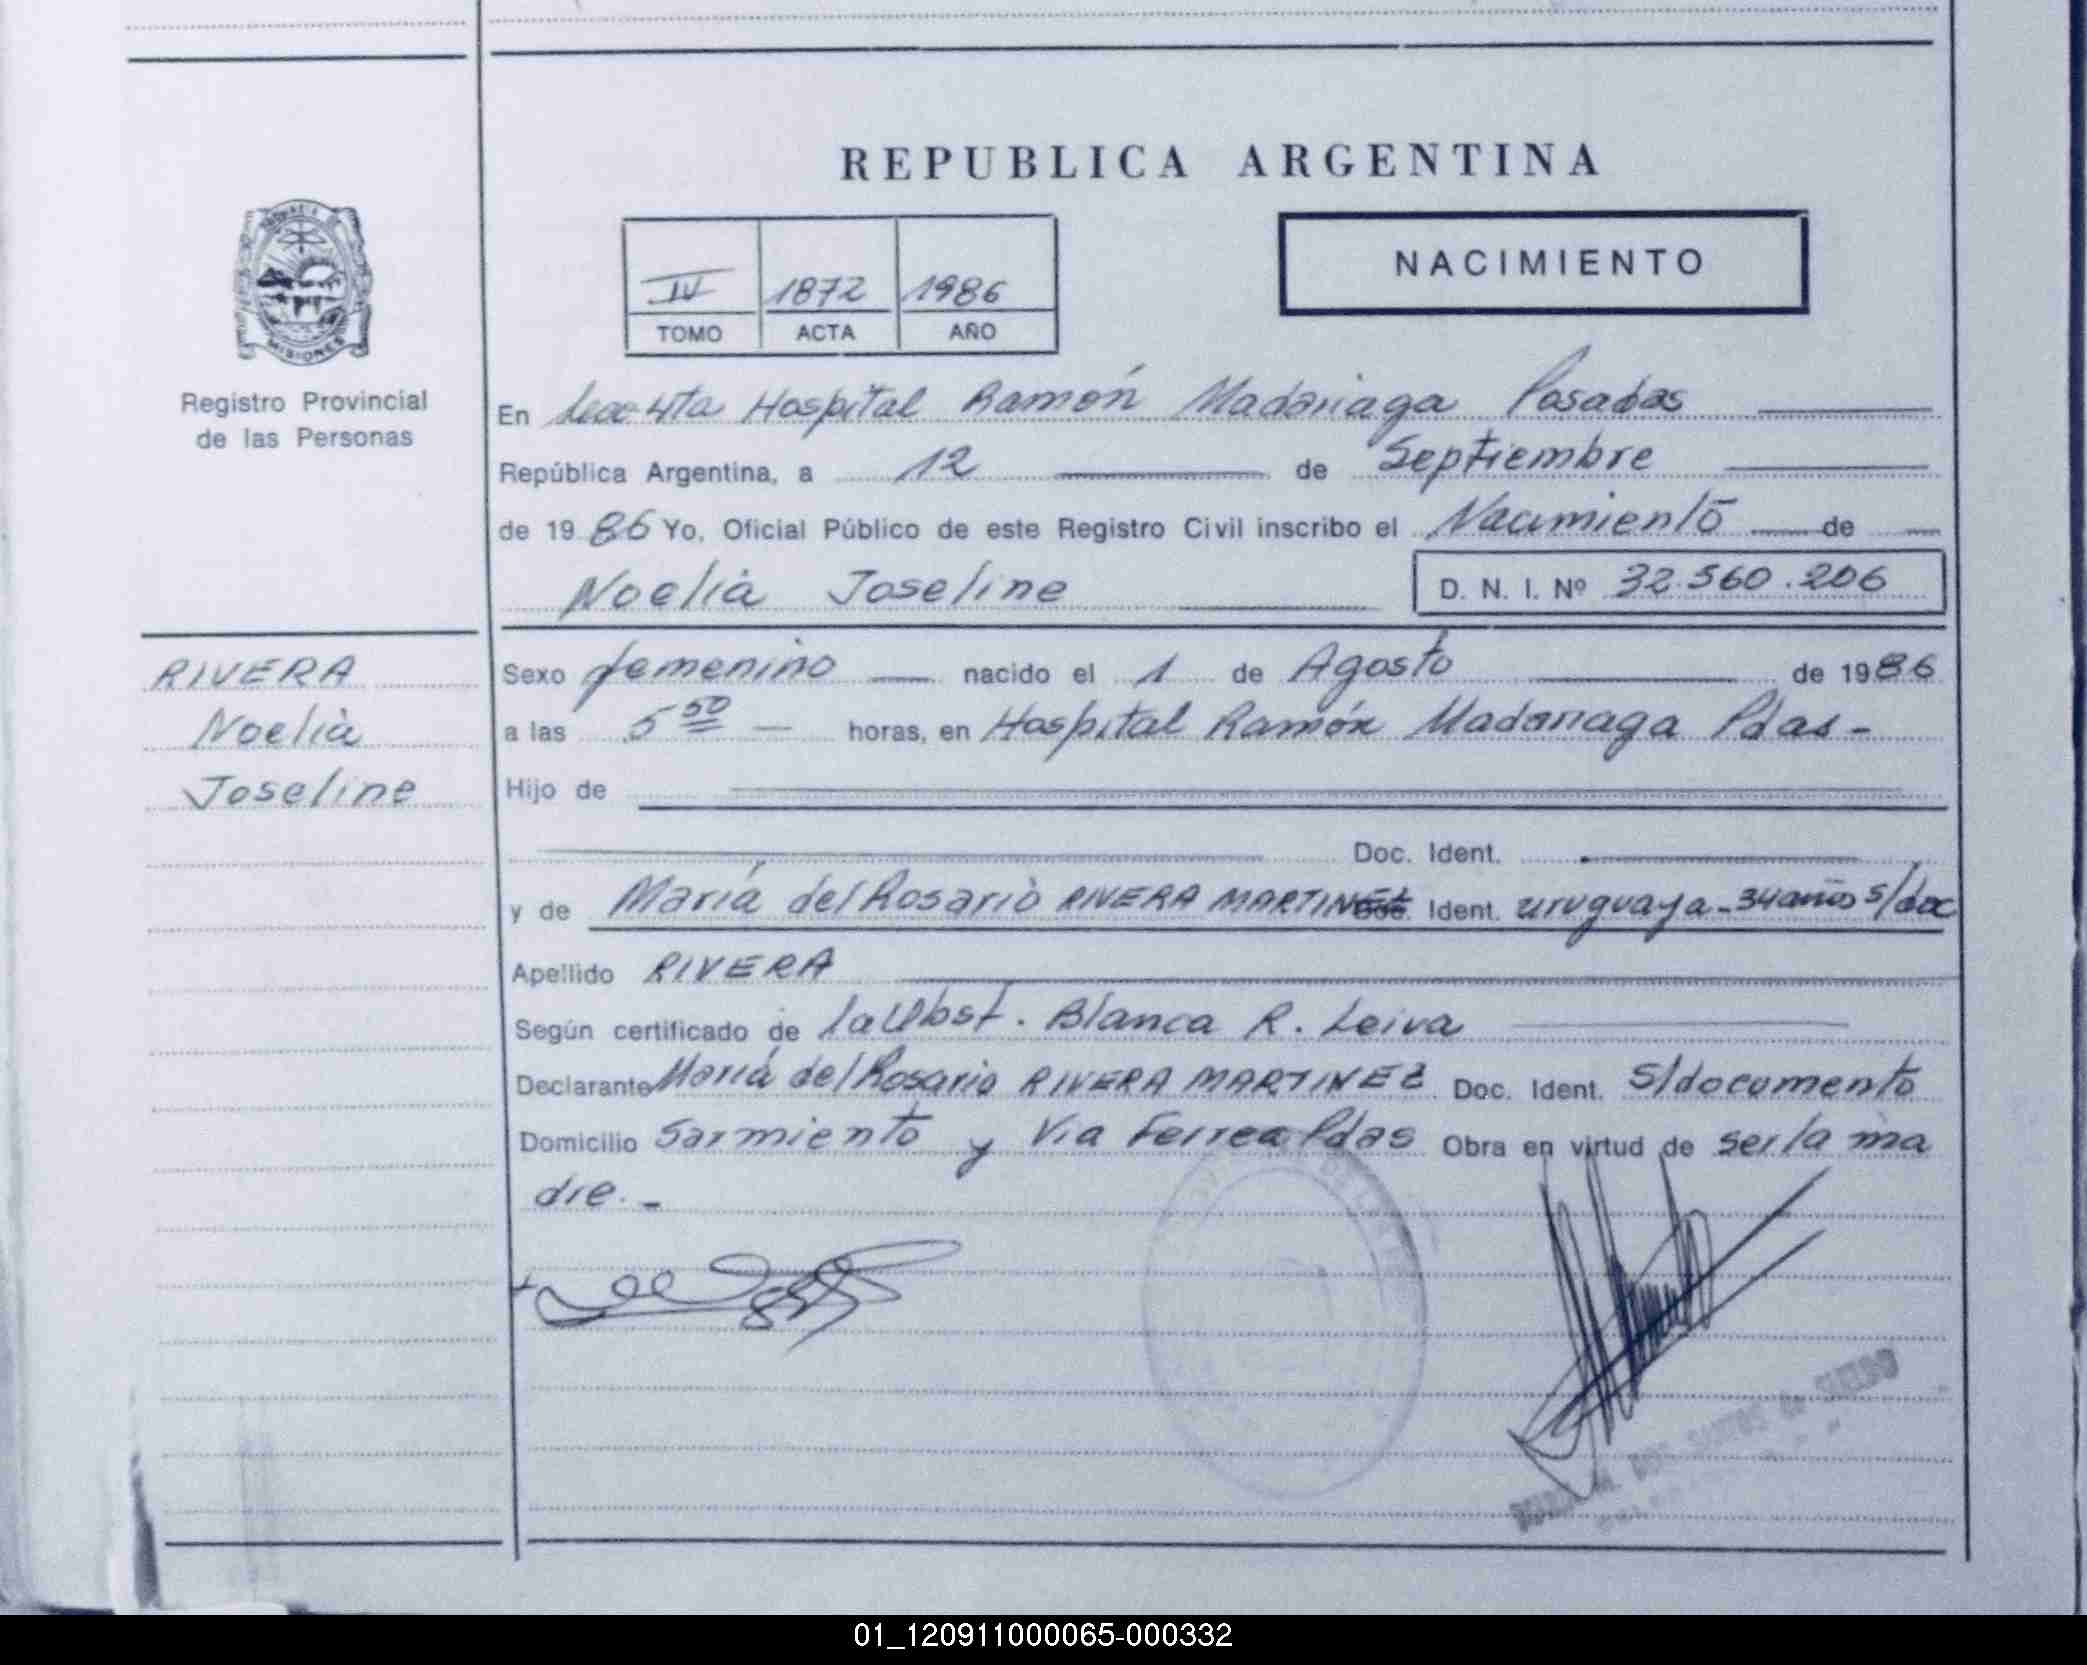 REPUBLICA ARGENTINA
NACIMIENTO
IV 1872 1986
TOMO ACTA AÑO
MISIONES
Registro Provincial
de las Personas
En Hospital Ramón Madariaga Posadas
República Argentina, a 12 de Septiembre
de 1986 Yo, Oficial Público de este Registro Civil inscribo el Nacimiento de
Noelia Joseline D. N. I. Nº 32.560.206
RIVERA
Noelia
Joseline
Sexo femenino nacido el 1 de Agosto de 1986
a las 5 50 horas, en Hospital Ramón Madariaga Pdas-
Hijo de
Doc. Ident.
y de María del Rosario RIVERA MARTINEZ Ident. uruguaya-34 años s/doc
Apellido RIVERA
Según certificado de la Obst. Blanca R. Leiva
Declarante María del Rosario RIVERA MARTINEZ Doc. Ident. S/documento
Domicilio Sarmiento y Via Ferrea Pdas Obra en virtud de ser la ma
dre.-
DOS SANTOS de
01_120911000065-000332